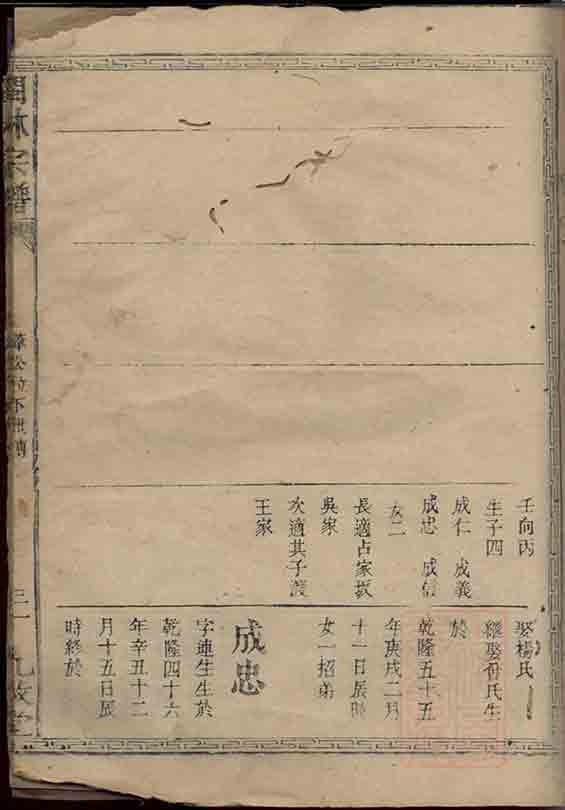 壬向丙
生子四
成仁 成義
成忠 成信
女二
長適占家振
吳家
次適其子渡
王家
娶楊氏
繼娶符氏生
於
乾隆五十五
年庚戌二月
十一日辰時
女一招弟
成忠
字連生生於
乾隆四十六
年辛丑十二
月十五日辰
時終於
林宗譜
公位下世
三